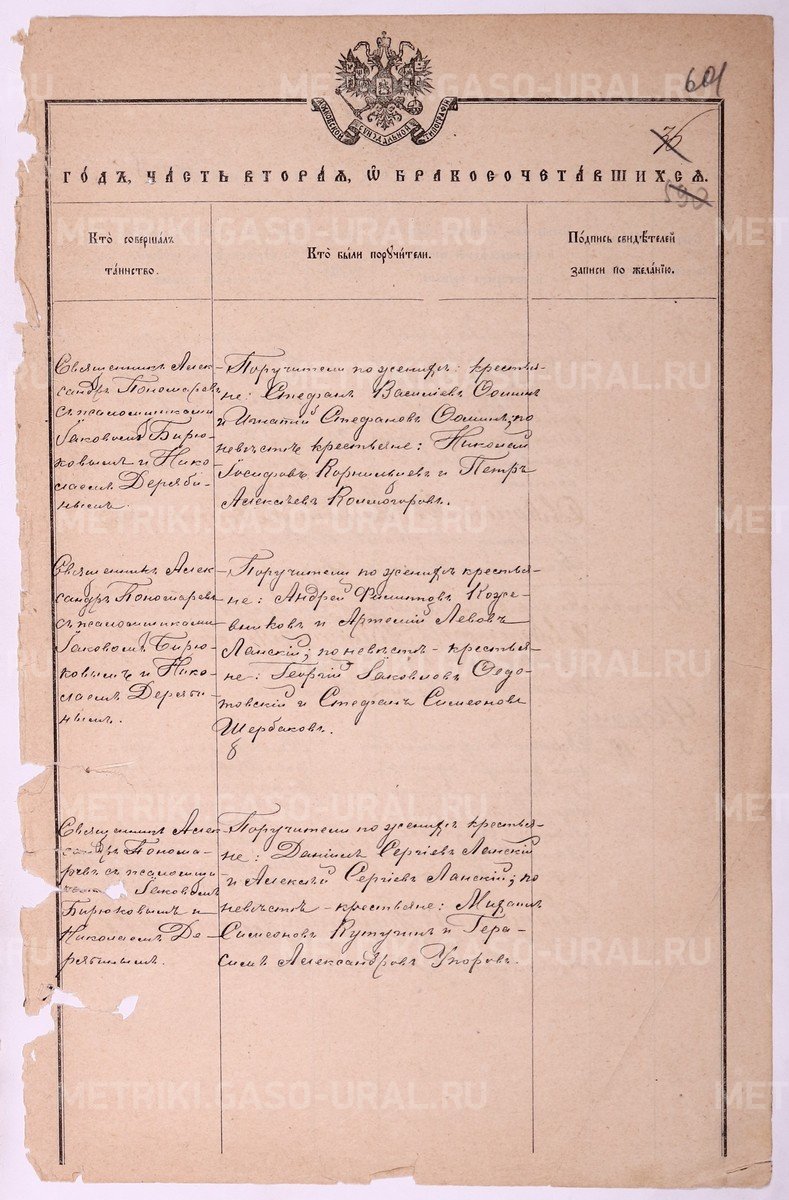 601
МОСКОВСКОЙ СѴНОДАЛЬНОЙ ТИПОГРАФІИ
36
ГОДЪ, ЧАСТЬ ВТОРАЯ, Ѡ БРАКОСОЧЕТАВШИХСЯ.
590
Кто совершалъ
таинство.
Кто были поручители.
Подпись свидѣтелей
записи по желанію.
Священникъ Алек-
сандръ Пономаревъ
съ псаломщиками
Іаковомъ Бирю-
ковымъ и Нико-
лаемъ Деряби-
нымъ.
Поручители по женихѣ: крестья-
не: Стефанъ Васильевъ Ооминъ
и Игнатій Стефановъ Ооминъ; по
невѣстѣ крестьяне: Николай
Іосифовъ Корнильевъ и Петръ
Алексѣевъ Колмогоровъ.
Священникъ Алек-
сандръ Пономаревъ
съ псаломщиками
Іаковомъ Бирю-
ковымъ и Нико-
лаемъ Деряби-
нымъ.
Поручители по женихѣ крестья-
не: Андрей Филипповъ Коже-
вниковъ и Артемій Левовъ
Ланскій; по невѣстѣ - крестья-
не: Георгій Іаковлевъ Федо-
товскій и Стефанъ Симеоновъ
Щербаковъ.
Священникъ Алек
сандръ Понома-
ревъ съ псаломщи
Іаковомъ
Бирюковымъ и
Николаемъ Де-
рябинымъ.
Поручители по женихѣ крестья-
не: Даніилъ Сергіевъ Ланскій
и Алексѣй Сергіевъ Ланскій; по
невѣстѣ - крестьяне: Михаилъ
Симеоновъ Кутугинъ и Гера-
симъ Александровъ Упоровъ.
METRIKI.GASO-URAL.RU